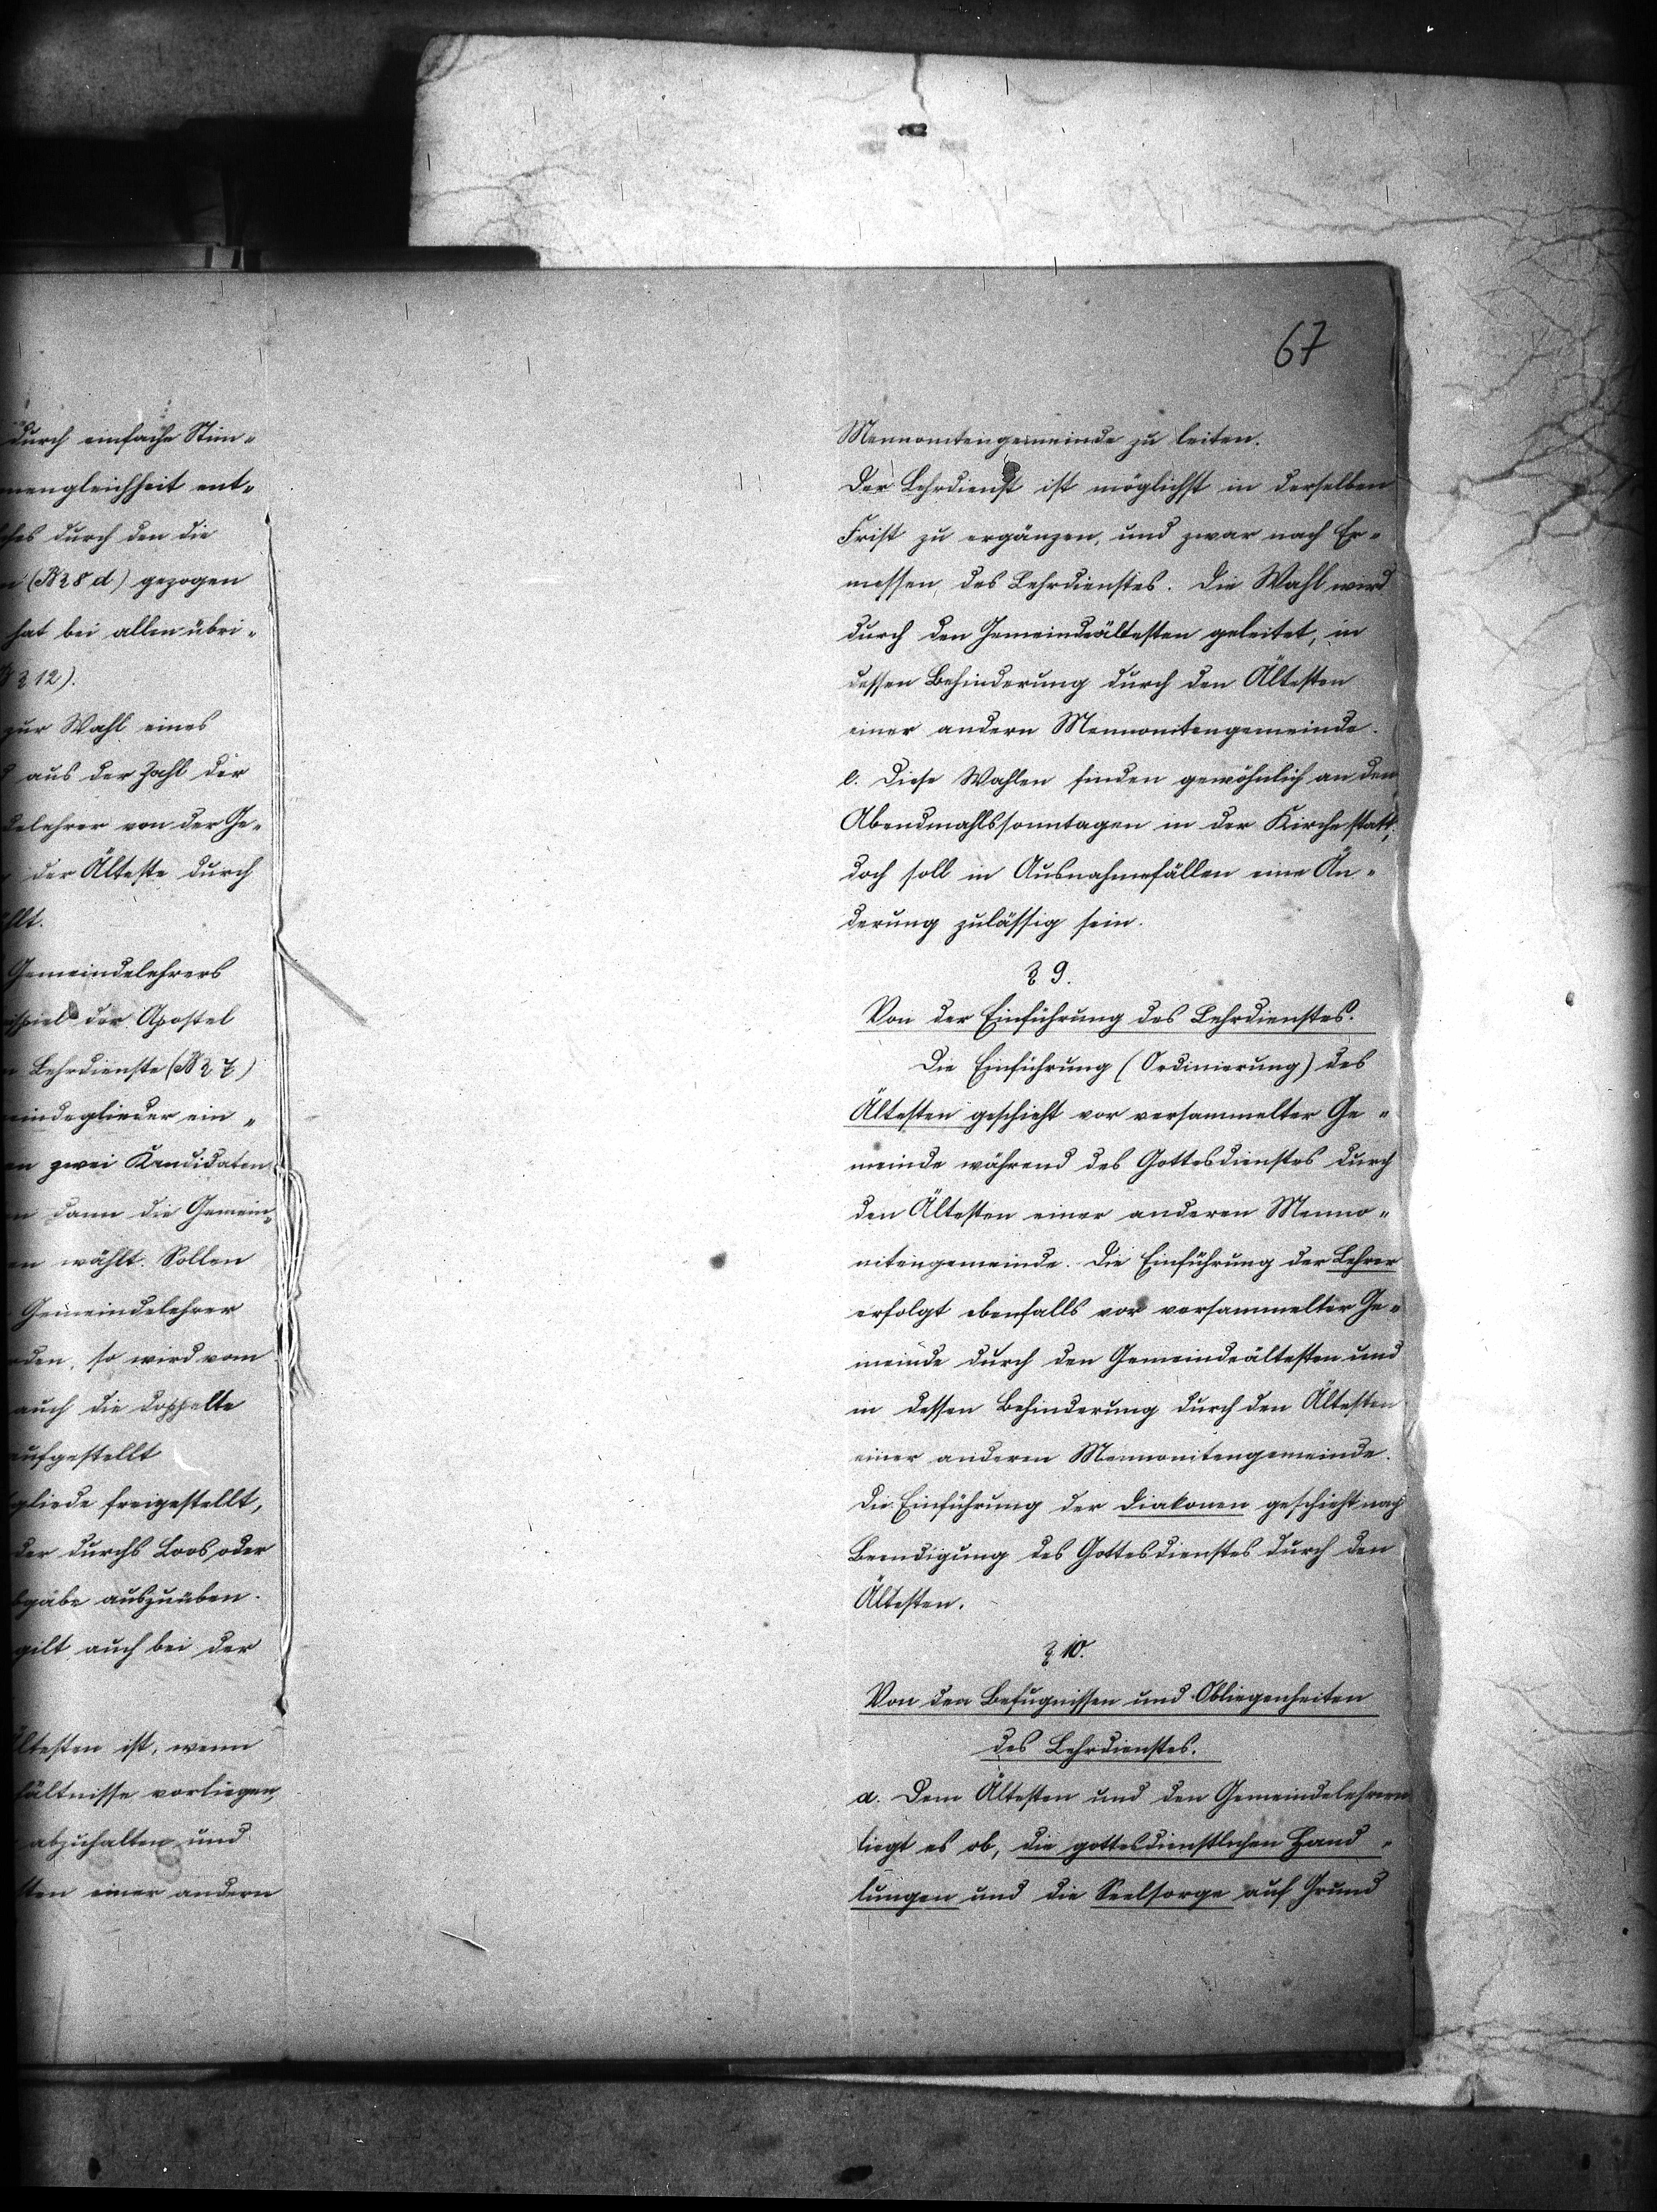 durch einfache Stim-
mengleichheit ent-
ches durch den die
(§ 8 d) gezogen
hat bei allen übri-
§ 12).
zur Wahl eines
aus der Zahl der
delehrer von der Ge-
der Älteste durch
hlt.
Gemeindelehrers
ispiel der Apostel
Lehrdienste (§ 7)
eindeglieder ein-
en zwei Kandidaten
dann die Gemein-
en wählt. Sollen
Gemeindelehrer
rden, so wird vom
auch die doppelte
aufgestellt
gliede freigestellt,
der durchs Loos oder
bgabe auszuüben.
gilt auch bei der
ltesten ist, wenn
hältnisse vorliegen,
abzuhalten und
sten einer andern
67
Mennonitengemeinde zu leiten.
Der Lehrdienst ist möglichst in derselben
Frist zu ergänzen, und zwar nach Er-
messen des Lehrdienstes. Die Wahl wird
durch den Gemeindeältesten geleitet, in
dessen Behinderung durch den Ältesten
einer andern Mennonitengemeinde.
e. Diese Wahlen finden gewöhnlich an den
Abendmahlssonntagen in der Kirche statt,
doch soll in Ausnahmefällen eine Än-
derung zulässig sein.
§ 9.
Von der Einführung des Lehrdienstes.
Die Einführung (Ordinierung) des
Ältesten geschieht vor versammelter Ge-
meinde während des Gottesdienstes durch
den Ältesten einer anderen Menno-
nitengemeinde. Die Einführung der Lehrer
erfolgt ebenfalls vor versammelter Ge-
meinde durch den Gemeindeältesten und
in dessen Behinderung durch den Ältesten
einer anderen Mennonitengemeinde.
Die Einführung der Diakonen geschieht nach
Beendigung des Gottesdienstes durch den
Ältesten.
§ 10.
Von den Befugnissen und Obliegenheiten
des Lehrdienstes.
a. Dem Ältesten und den Gemeindelehrern
liegt es ob, die gottesdienstlichen Hand-
lungen und die Seelsorge auf Grund